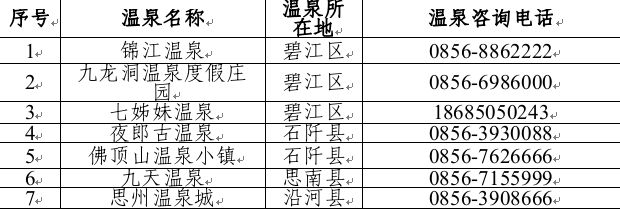 序号 温泉名称 温泉所在地 温泉咨询电话
1 锦江温泉 碧江区 0856-8862222
2 九龙洞温泉度假庄园 碧江区 0856-6986000
3 七姊妹温泉 碧江区 18685050243
4 夜郎古温泉 石阡县 0856-3930088
5 佛顶山温泉小镇 石阡县 0856-7626666
6 九天温泉 思南县 0856-7155999
7 思州温泉城 沿河县 0856-3908666